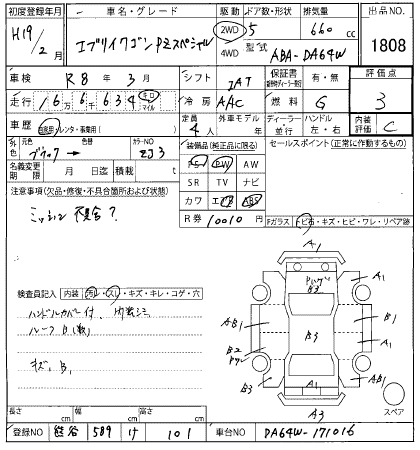 初度登録年月 車名・グレード 駆動 ドア数・形状 排気量 出品NO.
H19/2月 エブリイワゴン PZスペシャル 2WD 4WD 5 660 cc 1808
型式 ABA-DA64W
車検 R8年3月 シフト IAT 保証書 有・無 評価点
走行 16万6千634 キロ マイル 冷房 AAC 燃料 G 3
車歴 自家用・レンタ・事業用( ) 定員 4人 外車モデル 年 ディーラー 並行 ハンドル 左・右 内装評価 C
外色 元色 色替 カラーNO
ブラック → ZJ3
装備品(純正品に限る) セールスポイント(正常に動作するもの)
PS PW AW
名義変更期限 月 日迄 積載 t
SR TV ナビ
注意事項(欠品・修復・不具合箇所および状態)
カワ エアB ABS
ミッション 不具合?
R券 10010円 Fガラス トビ石・キズ・ヒビ・ワレ・リペア跡
A1
バック B3
A1
検査員記入 内装 汚れ・スレ・キズ・キレ・コゲ・穴
AB1 B3 B1
ハンドルカバー付、内装シミ
ルーフ B1(数)
B2 A1
キズ、B1
B3 A1 AB1
スペア
長さ cm 幅 cm 高さ cm
A3
登録NO 熊谷 589 け 101 車台NO DA64W-171016